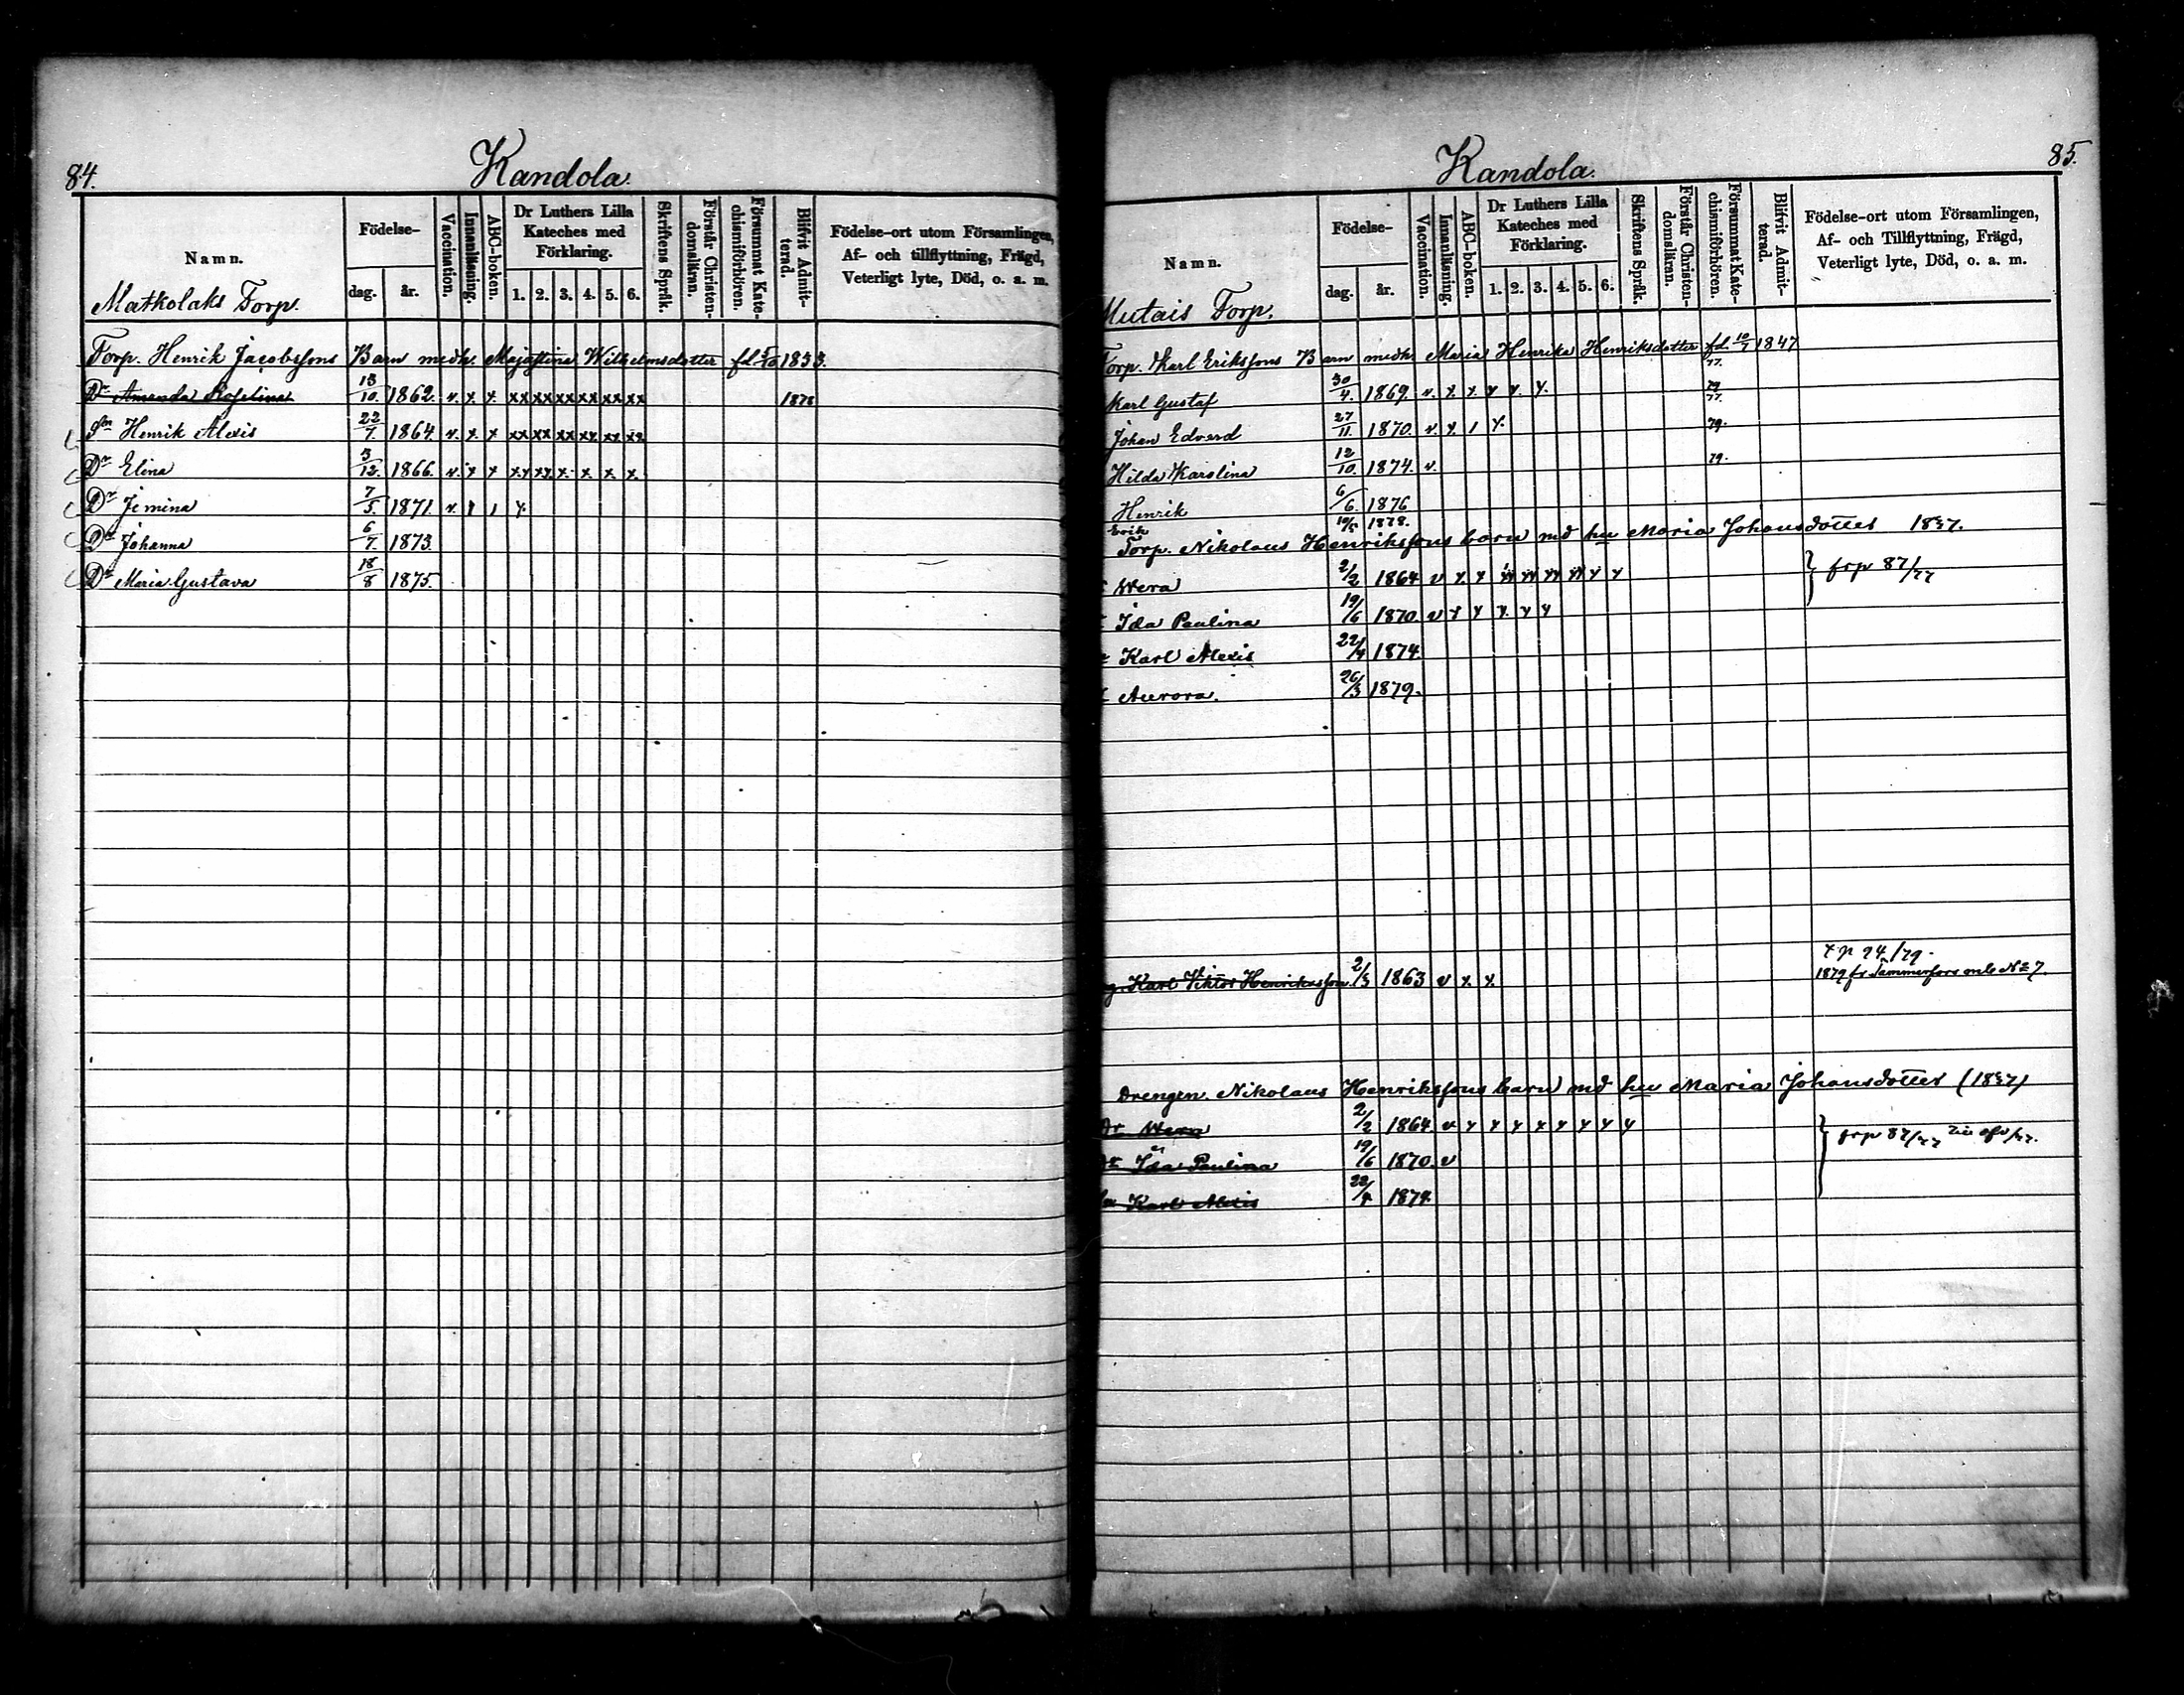 84.
Kandola.
Namn.
Födelse-
dag. år.
Vaccination.
Innanläsning.
ABC-boken.
Dr Luthers Lilla Kateches med Förklaring.
1. 2. 3. 4. 5. 6.
Skriftens Språk.
Förstår Christen-domsläran.
Försummat Kate-chismiförhören.
Blifvit Admit-terad.
Födelse-ort utom Församlingen,
Af- och tillflyttning, Frägd,
Veterligt lyte, Död, o. a. m.
Matkolaks Torp.
Torp. Henrik Jacobssons Barn medh. Majastina Wilhelmsdotter fd. 1833.
Dr Amanda Roselina 13/10. 1862. v. x x xx xx xx xx xx xx 1878
Sn Henrik Alexis 22/7. 1864. v. x x xx xx xx xx xx xx
Dr Elina 3/12. 1866. v. x x xx xx x x x x.
Dr Jemina 7/5. 1871. v. 1 1 x
Dr Johanna 6/7. 1873.
Dr Maria Gustava 18/8 1875.
85.
Kandola.
Namn.
Födelse-
dag. år.
Vaccination.
Innanläsning.
ABC-boken.
Dr Luthers Lilla Kateches med Förklaring.
1. 2. 3. 4. 5. 6.
Skriftens Språk.
Förstår Christen-domsläran.
Försummat Kate-chismiförhören.
Blifvit Admit-terad.
Födelse-ort utom Församlingen,
Af- och Tillflyttning, Frägd,
Veterligt lyte, Död, o. a. m.
Mutais Torp.
Torp. Karl Erikssons Barn medh Maria Henrika Henriksdotter fd. 10/7 1847
77.
Karl Gustaf 30/4. 1869. v. x x. x x. x. 79
77.
Johan Edvard 27/11. 1870. v. x 1 x. 79.
Hilda Karolina 12/10. 1874. v. 79.
Henrik 6/6. 1876
Erik 10/5 1878.
Torp. Nikolaus Henrikssons barn md hu Maria Johansdotter 1837.
Wera 2/2 1864 v x x x x x x x x } frp 87/77
Ida Paulina 19/6 1870. v x x x. x x
Karl Alexis 22/4 1874
Aurora. 26/3 1879.
xp 94/79.
Karl Viktor Henriksson 2/3 1863 v x x. 1879 fr Tammerfors enl. No 7.
Drengen Nikolaus Henrikssons barn md hu Maria Johansdotter (1837)
Dr Wera 2/2 1864. v x x x x x x x x } frp 87/77
Dr Ida Paulina 19/6 1870. v
Sn Karl Alexis 22/4 1874